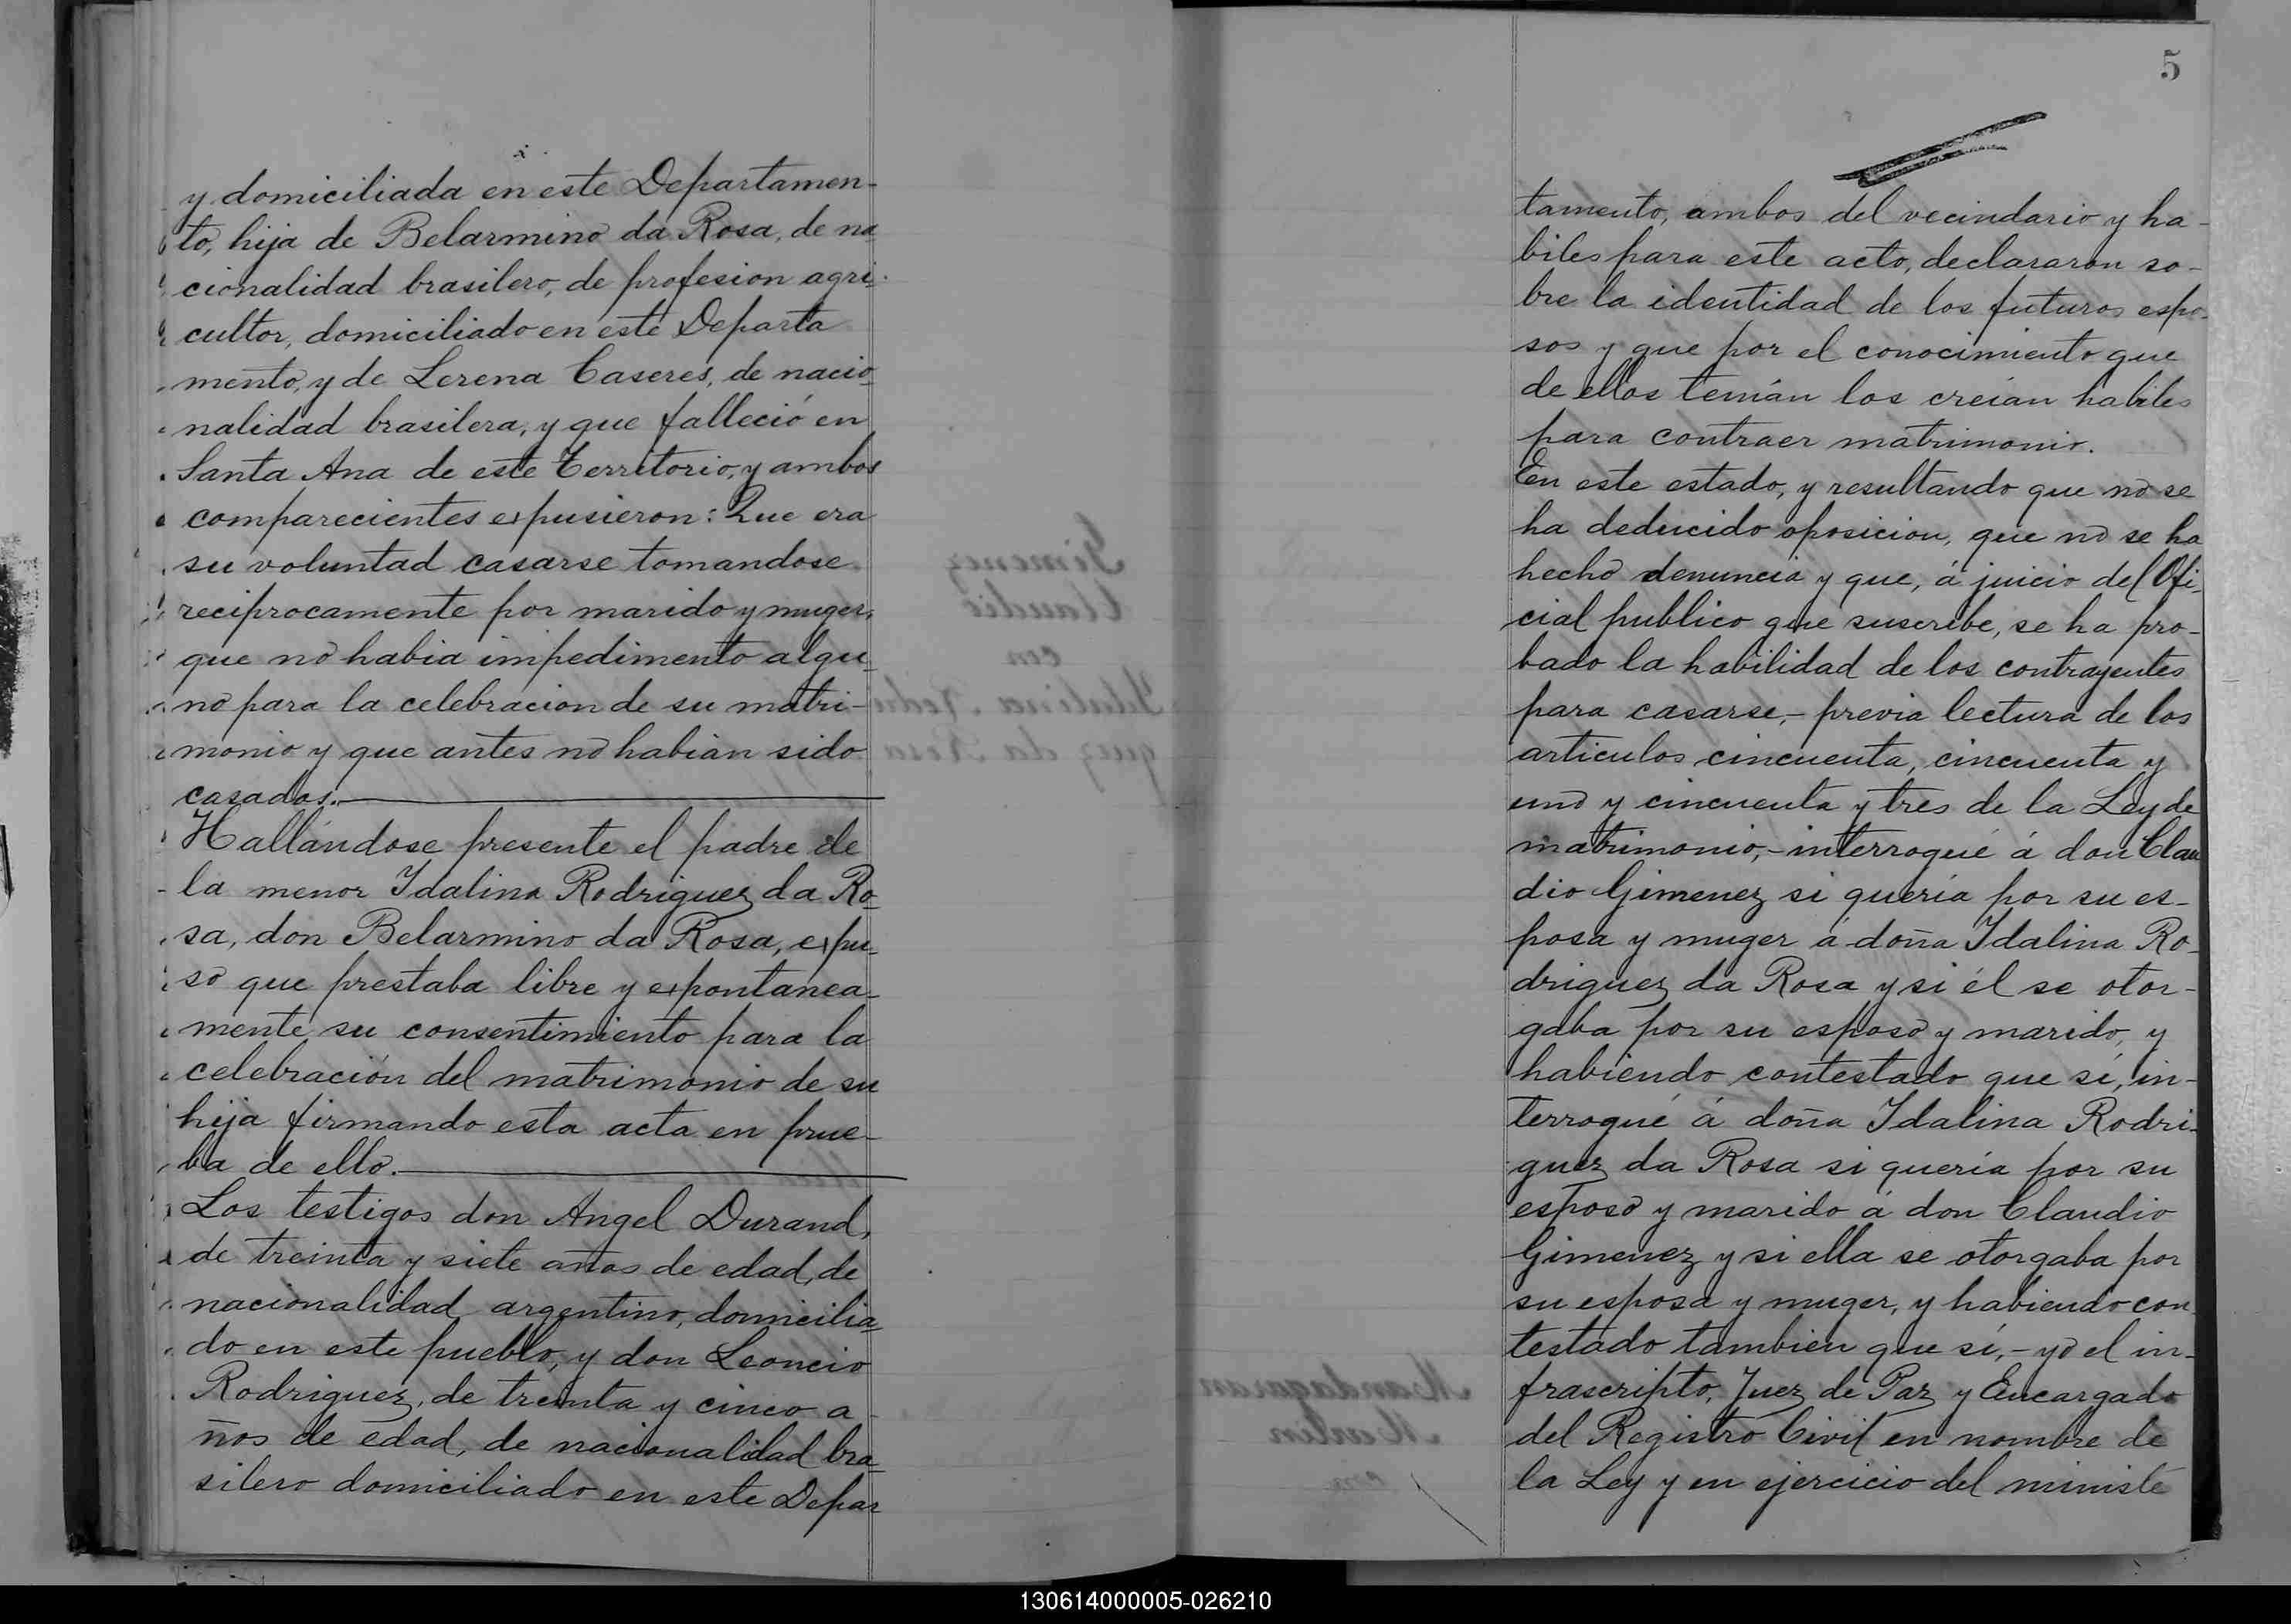 y domiciliada en este Departamen-
to, hija de Belarmino da Rosa, de na
cionalidad brasilero, de profesion agri-
cultor, domiciliado en este Departa
mento, y de Lerena Caseres, de nacio
nalidad brasilera, y que falleció en
Santa Ana de este Territorio, y ambos
comparecientes expusieron: Que era
su voluntad casarse tomandose
reciprocamente por marido y muger,
que no habia impedimento algu
no para la celebracion de su matri-
monio y que antes no habian sido
casados.
Hallándose presente el padre de
la menor Idalina Rodriguez da Ro
sa, don Belarmino da Rosa, expu
so que prestaba libre y expontanea-
mente su consentimiento para la
celebración del matrimonio de su
hija firmando esta acta en prue-
ba de ello.
Los testigos don Angel Durand,
de treinta y siete años de edad, de
nacionalidad argentino, domicilia
do en este pueblo, y don Leoncio
Rodriguez, de treinta y cinco a
ños de edad, de nacionalidad bra
silero domiciliado en este Depar
5
tamento, ambos del vecindario y ha-
biles para este acto, declararon so-
bre la identidad de los futuros espo-
sos y que por el conocimiento que
de ellos tenían los creían habiles
para contraer matrimonio.
En este estado, y resultando que no se
ha deducido oposicion, que no se ha
hecho denuncia y que, á juicio del Ofi-
cial publico que suscribe, se ha pro-
bado la habilidad de los contrayentes
para casarse,- previa lectura de los
articulos cincuenta, cincuenta y
uno y cincuenta y tres de la Ley de
matrimonio,- interrogué á don Clau
dio Gimenez si quería por su es-
posa y muger á doña Idalina Ro-
driguez da Rosa y si él se otor-
gaba por su esposo y marido, y
habiendo contestado que sí, in-
terrogué á doña Idalina Rodri-
guez da Rosa si quería por su
esposo y marido á don Claudio
Gimenez y si ella se otorgaba por
su esposa y muger, y habiendo con
testado tambien que sí,- yo el in-
frascripto, Juez de Paz y Encargado
del Registro Civil en nombre de
la Ley y en ejercicio del ministe
130614000005-026210